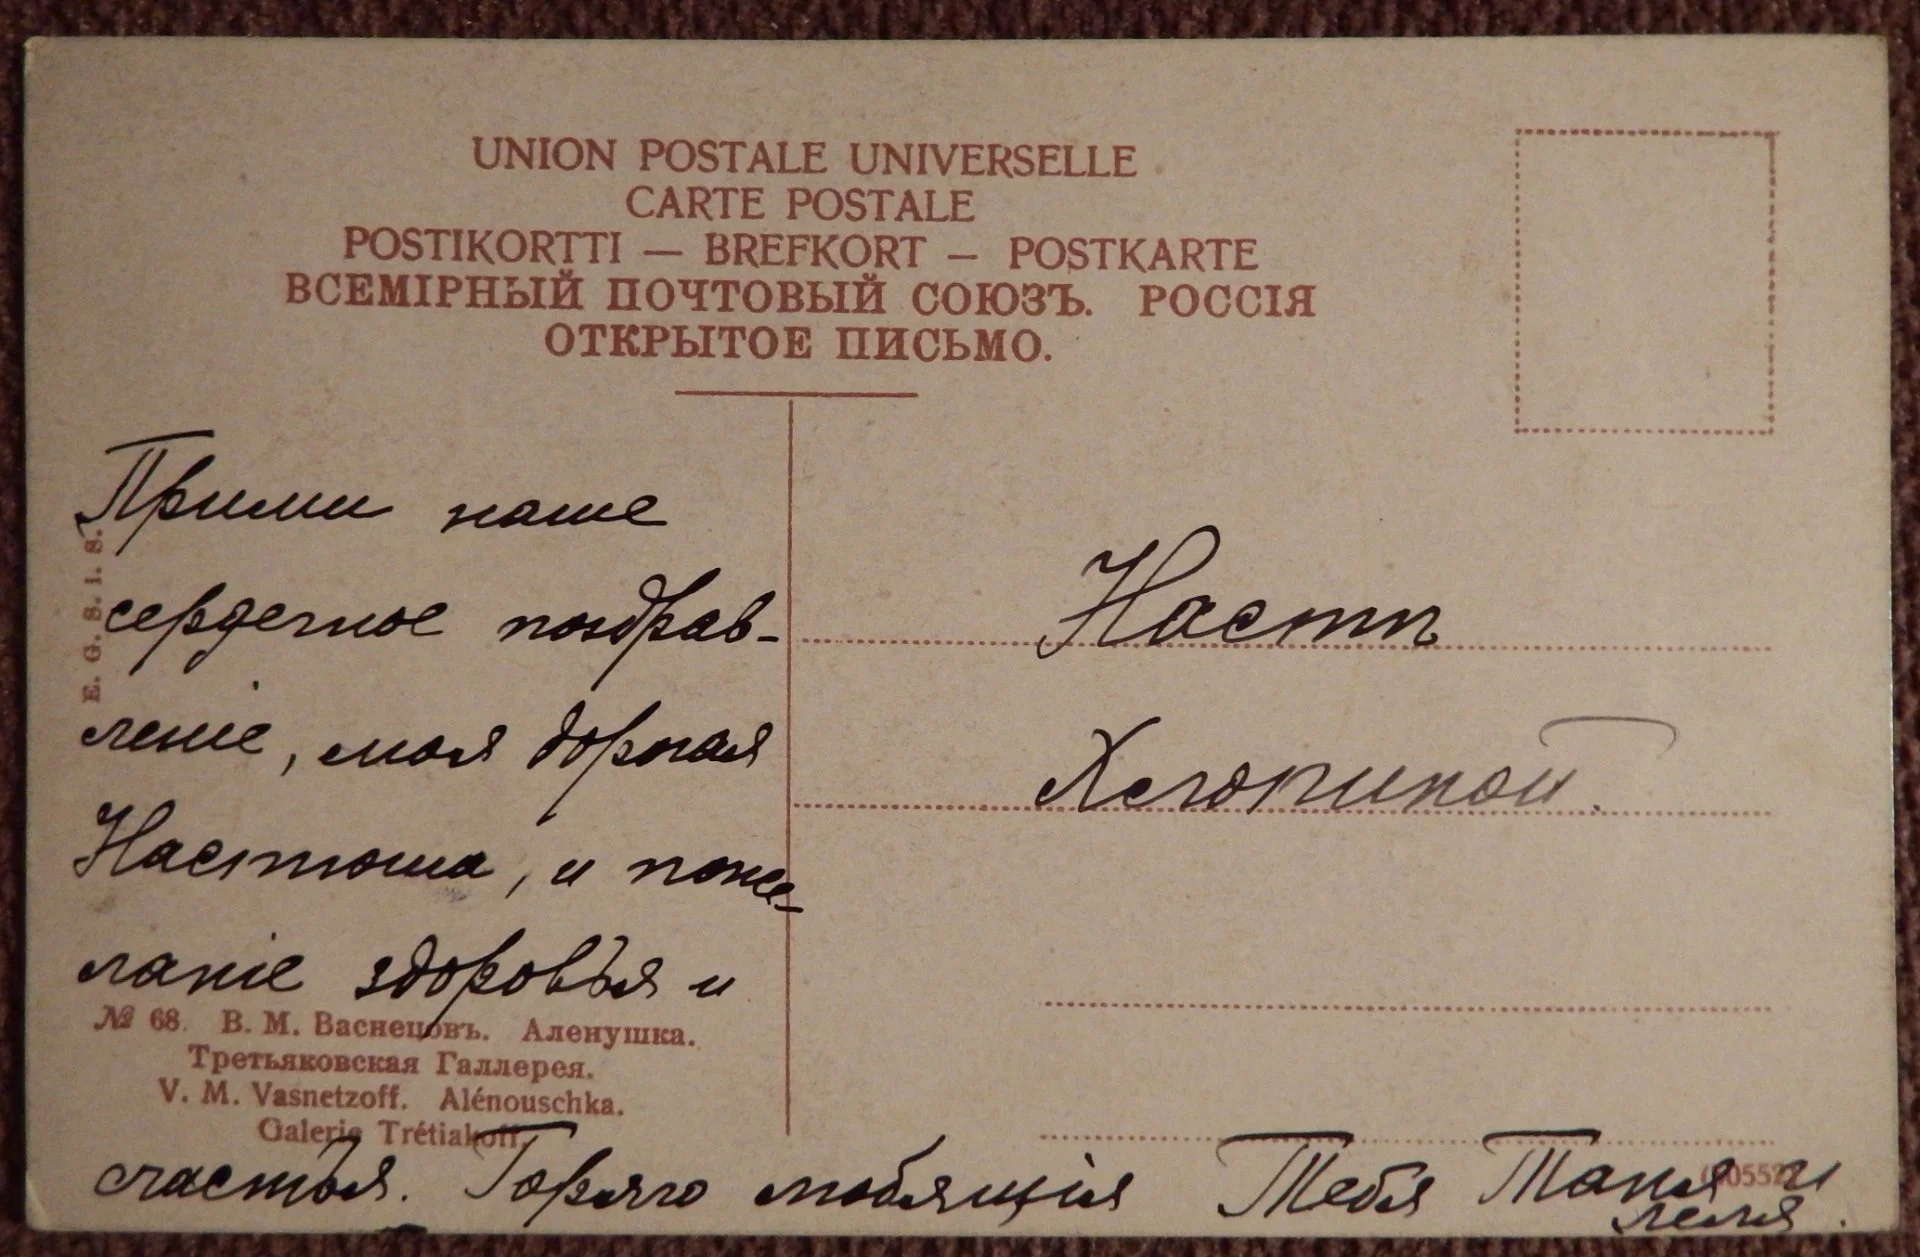 UNION POSTALE UNIVERSELLE
CARTE POSTALE
POSTIKORTTI — BREFKORT — POSTKARTE
ВСЕМІРНЫЙ ПОЧТОВЫЙ СОЮЗЪ. РОССІЯ
ОТКРЫТОЕ ПИСЬМО.
Прими наше
сердечное поздрав-
леніе, моя дорогая
Настюша, и поже-
ланіе здоровья и
счастья. Горячо любящія Тебя Таня и
Леля.
Насти
E. G. S. I. S.
№ 68. В. М. Васнецовъ. Аленушка.
Третьяковская Галлерея.
V. M. Vasnetzoff. Alénouschka.
Galerie Trétiakoff.